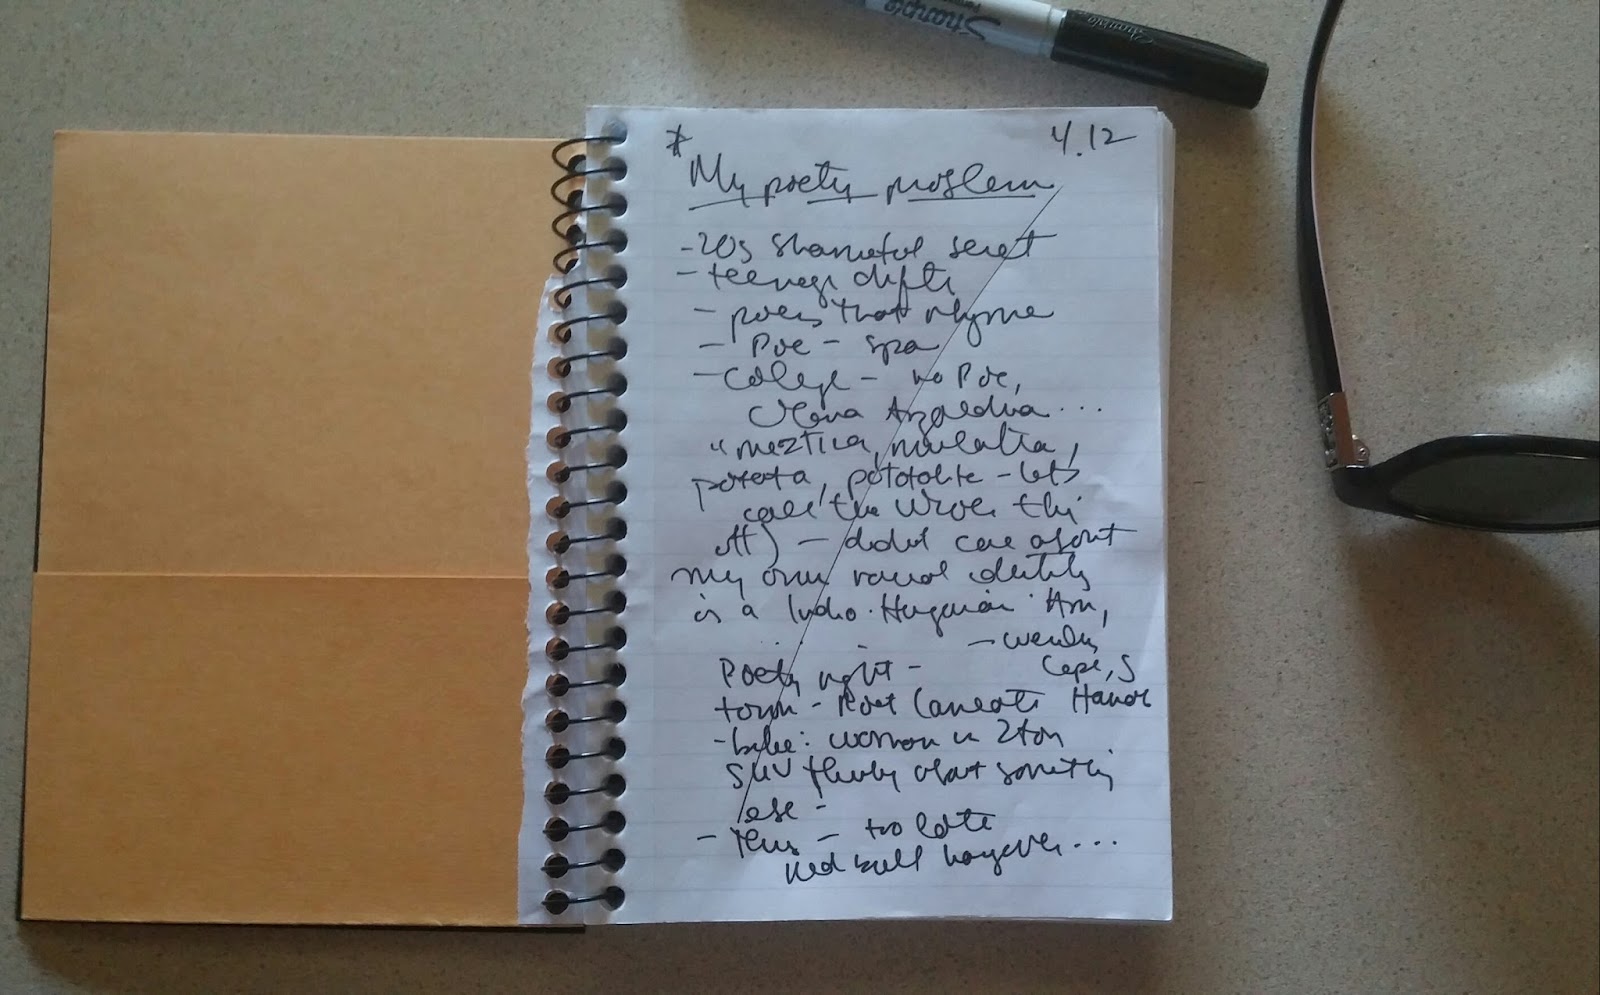 Sharpie
Sharpie
* 4.12
My poetry problem
- 20s shameful secret
- teenage
- poems that rhyme
- Poe -
- College - no Poe,
Anzaldua ...
"meztica, mulatta,
- let's
call the whole thing
off) - didn't care about
my own racial identity
is a Indo-Hungarian Am,
- wendy
Poetry night - Cope, S
town - Poet Laureate
- bike: woman in 2 ton
SUV thinking about something
else -
- - too late
red bull hangover ...